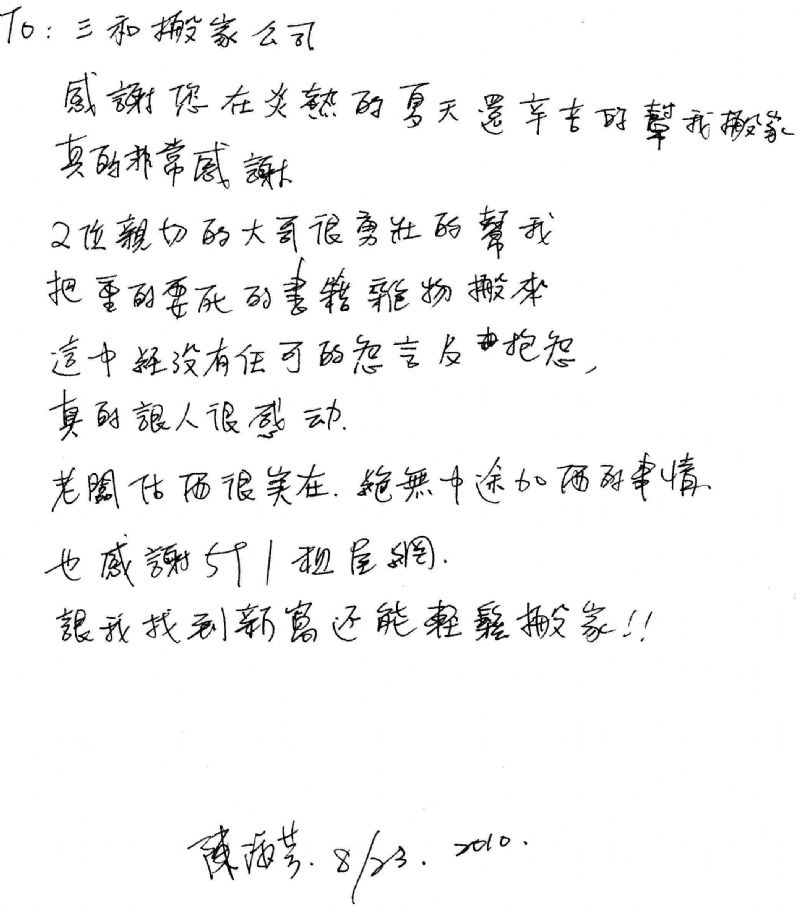 To: 三和搬家公司
感謝您在炎熱的夏天還辛苦的幫我搬家
真的非常感謝.
2位親切的大哥很勇壯的幫我
把重的要死的書籍雜物搬來
這中經沒有任可的怨言及抱怨,
真的讓人很感动.
老闆估价很实在.絕無中途加价的事情.
也感謝591租屋網.
讓我找到新窩还能輕鬆搬家!!
陳淑芳. 8/23. 2010.